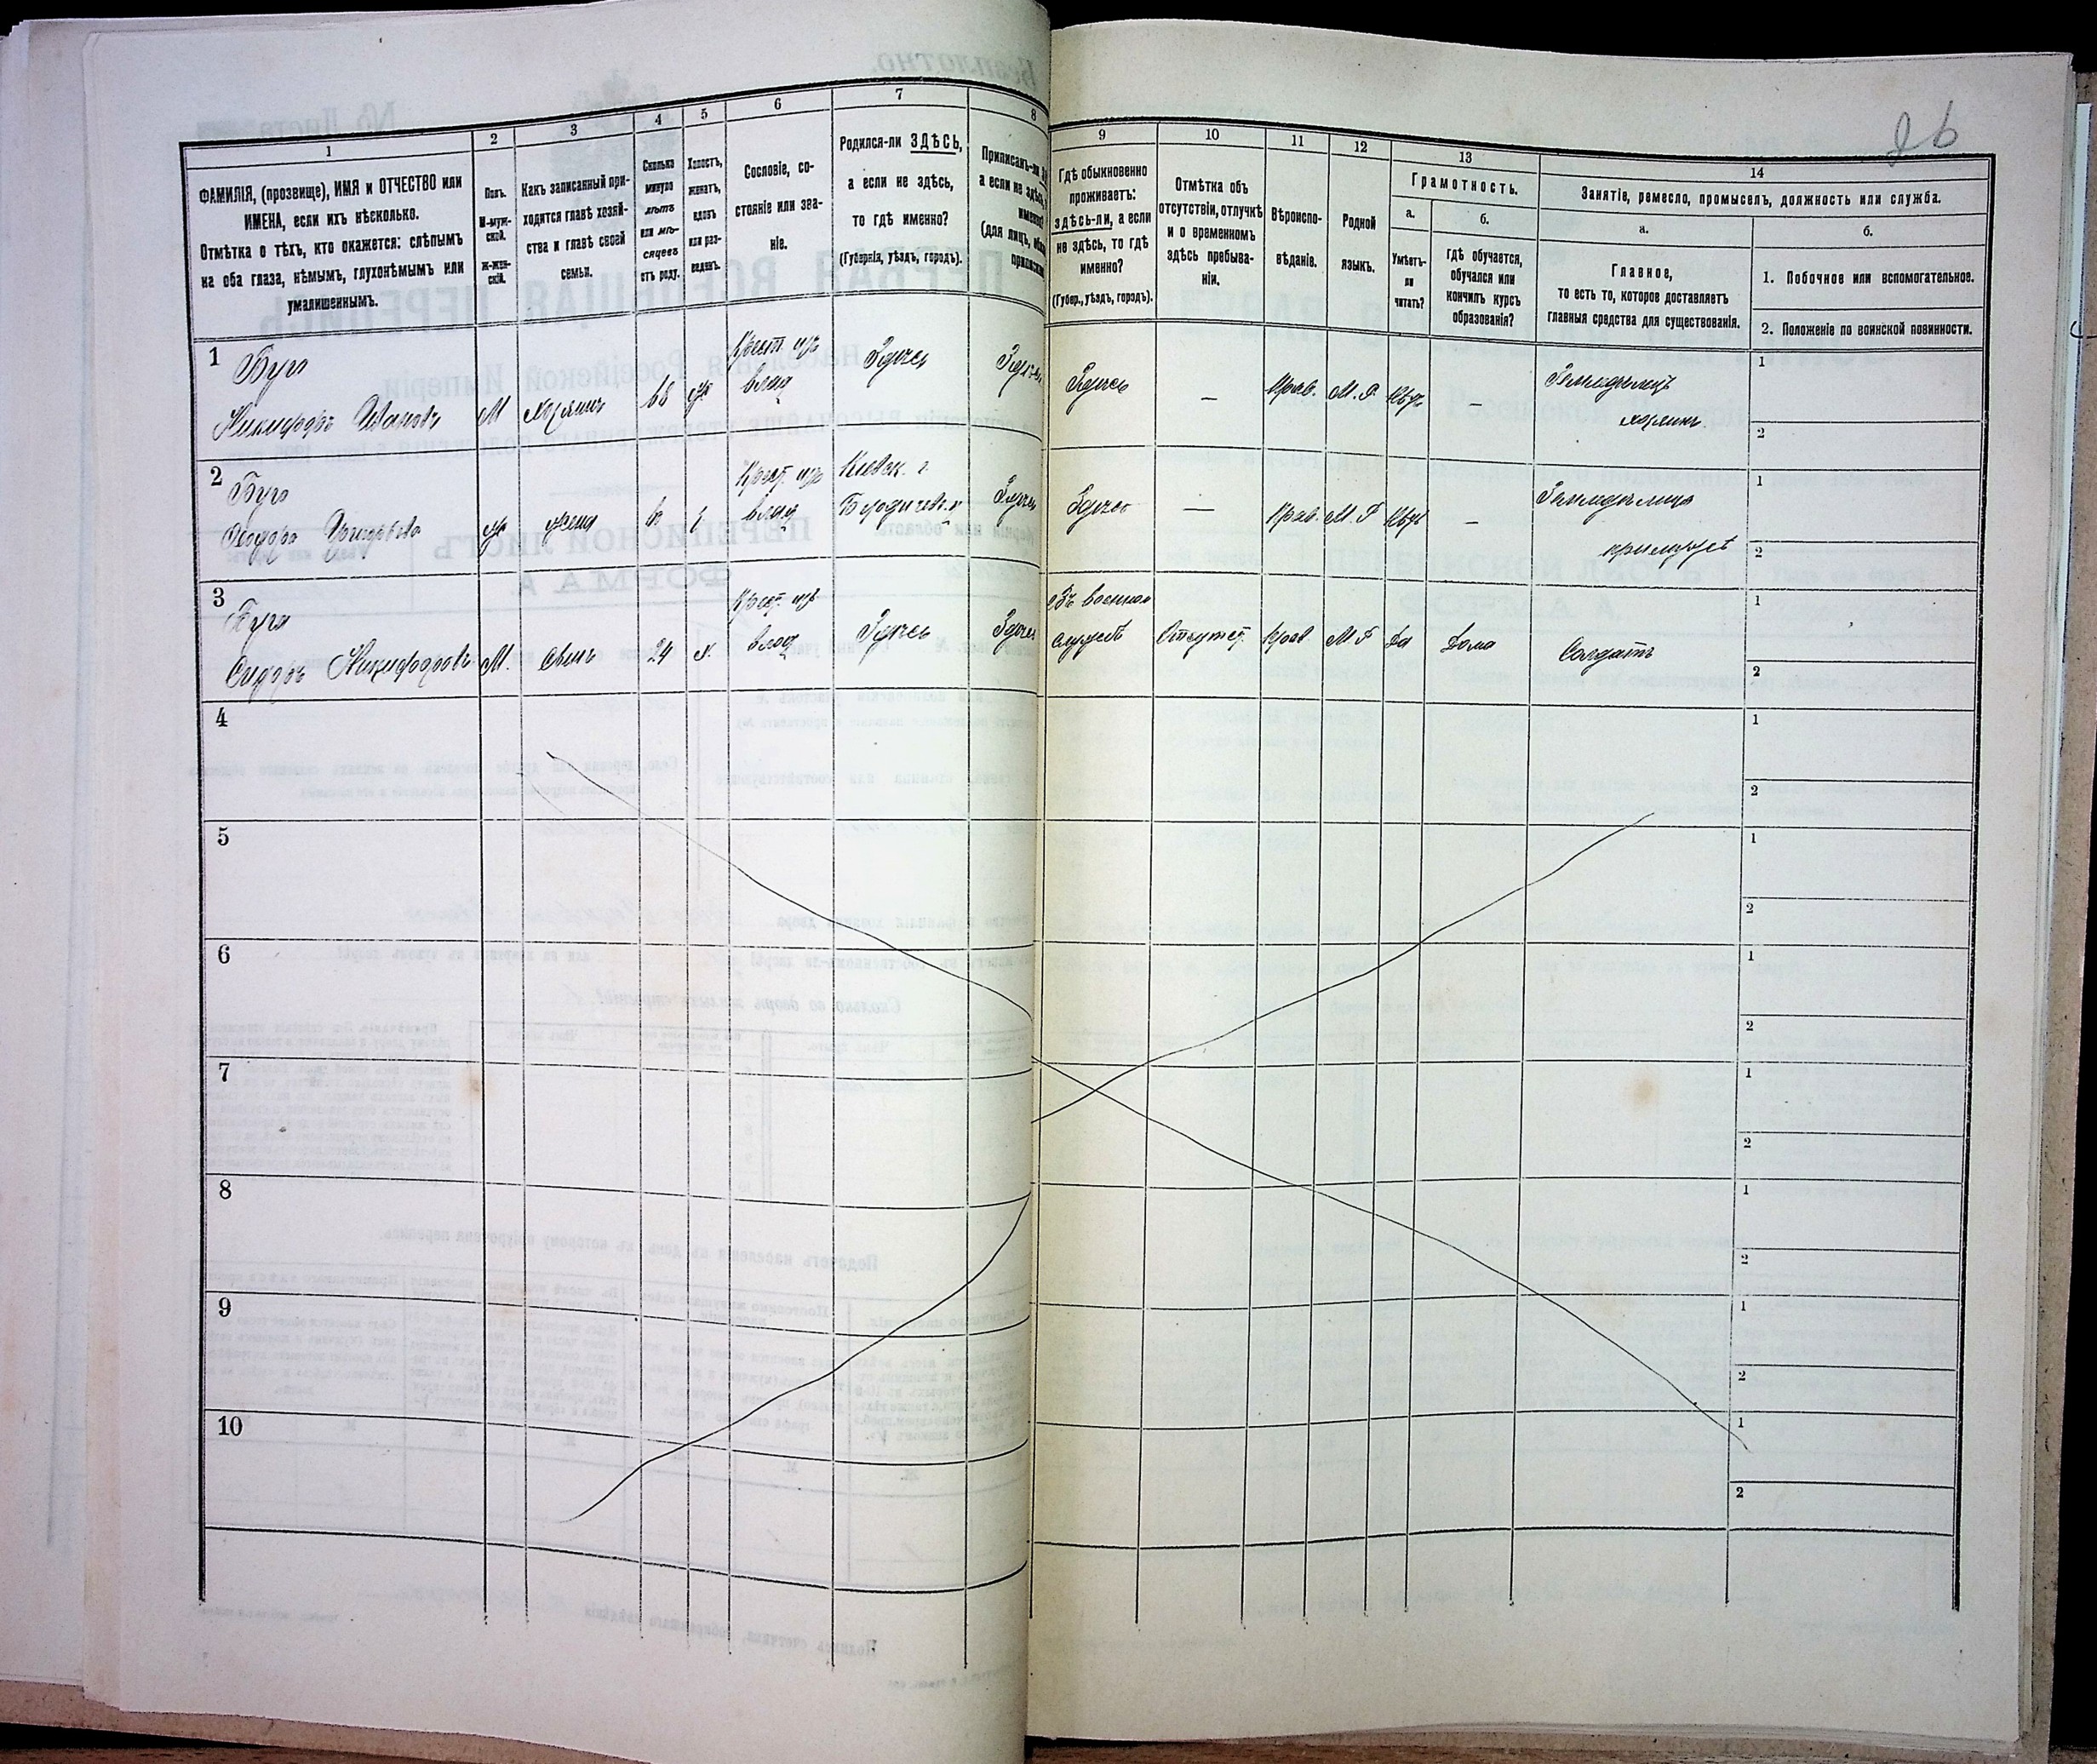 26
1
2
3
4
5
6
7
8
ФАМИЛІЯ, (прозвище), ИМЯ и ОТЧЕСТВО или
ИМЕНА, если ихъ нѣсколько.
Отмѣтка о тѣхъ, кто окажется: слѣпымъ
на оба глаза, нѣмымъ, глухонѣмымъ или
умалишеннымъ.
Полъ.
М-муж-
ской.
ж-жен-
скій.
Какъ записанный при-
ходится главѣ хозяй-
ства и главѣ своей
семьи.
Сколько
минуло
лѣтъ
или мѣ-
сяцевъ
отъ роду.
Холостъ,
женатъ,
вдовъ
или раз-
веденъ.
Сословіе, со-
стояніе или зва-
ніе.
Родился-ли ЗДѢСЬ,
а если не здѣсь,
то гдѣ именно?
(Губернія, уѣздъ, городъ).
Приписанъ-ли
а если не здѣсь,
(для лицъ,
9
10
11
12
13
14
Гдѣ обыкновенно
проживаетъ:
здѣсь-ли, а если
не здѣсь, то гдѣ
именно?
(Губер., уѣздъ, городъ).
Отмѣтка объ
отсутствіи, отлучкѣ
и о временномъ
здѣсь пребыва-
ніи.
Вѣроиспо-
вѣданіе.
Родной
языкъ.
Грамотность.
а.
б.
Умѣетъ-
ли
читать?
Гдѣ обучается,
обучался или
кончилъ курсъ
образованія?
Занятіе, ремесло, промыселъ, должность или служба.
а.
б.
Главное,
то есть то, которое доставляетъ
главныя средства для существованія.
1. Побочное или вспомогательное.
2. Положеніе по воинской повинности.
1 Буго
Никифоръ Ивановъ М хозяинъ 68 ж Крест. изъ
влад Здѣсь Здѣсь
Здѣсь — Прав. М.Р. — Земледѣлецъ
хозяинъ
1
2
2 Буго
Феодора ж жена Крест. изъ
влад Кіевск. г.
Бердичевск. Здѣсь
Здѣсь — Прав. М.Р — Земледѣлица
при мужѣ
1
2
3 Буга
Сидоръ Никифоровъ М. сынъ 24 х. Крест. изъ
влад Здѣсь Здѣсь
Въ военной
службѣ Отсутст. прав М Р Да Дома Солдатъ
1
2
4
1
2
5
1
2
6
1
2
7
1
2
8
1
2
9
1
2
10
1
2